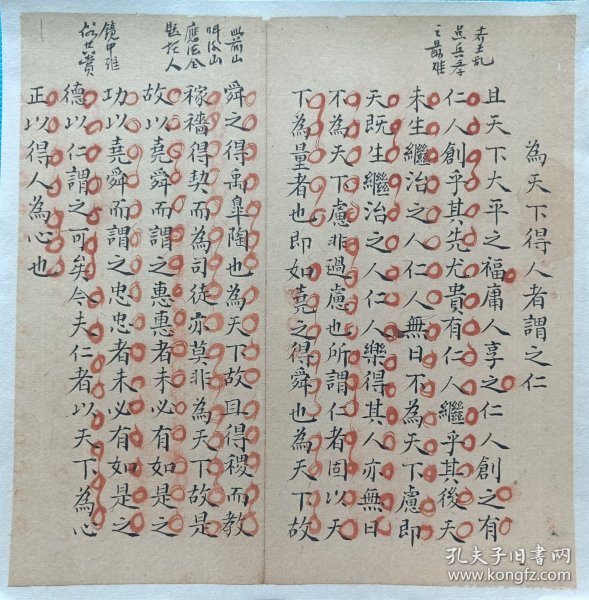 為天下得人者謂之仁
且天下大平之福庸人享之仁人創之有
仁人創乎其先尤貴有仁人繼乎其後天
未生繼治之人仁人無日不為天下慮即
天既生繼治之人仁人樂得其人亦無日
不為天下慮非過慮也所謂仁者固以天
下為量者也即如堯之得舜也為天下故
舜之得禹臯陶也為天下故且得稷而教
稼穡得契而為司徒亦莫非為天下故是
故以堯舜而謂之惠惠者未必有如是之
功以堯舜而謂之忠忠者未必有如是之
德以仁謂之可矣今夫仁者以天下為心
正以得人為心也
孔夫子旧书网
www.kongfz.com